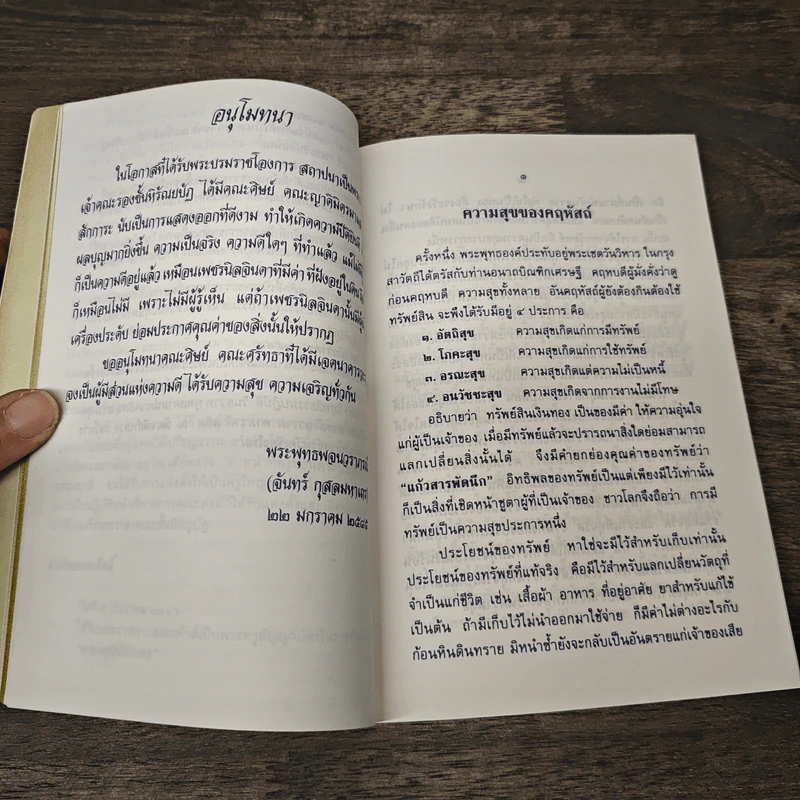 อนุโมทนา
ในโอกาสที่ได้รับพระบรมราชโองการ สถาปนาเป็นพระ
เจ้าคณะรองชั้นหิรัณยบัฏ ได้มีคณะศิษย์ คณะญาติมิตรมา
สักการะ นับเป็นการแสดงออกที่ดีงาม ทำให้เกิดความปีติยินดี
ผลบุญมากยิ่งขึ้น ความเป็นจริง ความดีใดๆ ที่ทำแล้ว แม้
ก็เป็นความดีอยู่แล้ว เหมือนเพชรนิลจินดาที่มีค่า ที่ฝังอยู่ใน
ก็เหมือนไม่มี เพราะไม่มีผู้รู้เห็น แต่ถ้าเพชรนิลจินดานั้น
เครื่องประดับ ย่อมประกาศคุณค่าของสิ่งนั้นให้ปรากฏ
ขออนุโมทนาคณะศิษย์ คณะศรัทธาที่ได้มีเจตนาคารวะ
จงเป็นผู้มีส่วนแห่งความดี ได้รับความสุข ความเจริญทั่วกัน
พระพุทธพจนวราภรณ์
(จันทร์ กุสลมหาเถร)
๒๒ มกราคม
๑
ความสุขของคฤหัสถ์
ครั้งหนึ่ง พระพุทธองค์ประทับอยู่พระเชตวันวิหาร ในกรุง
สาวัตถีได้ตรัสกับท่านอนาถบิณฑิกเศรษฐี คฤหบดีผู้มั่งคั่งว่าดู
ก่อนคฤหบดี ความสุขทั้งหลาย อันคฤหัสถ์ผู้ยังต้องกินต้องใช้
ทรัพย์สิน จะพึงได้รับมีอยู่ ๔ ประการ คือ
๑. อัตถิสุข ความสุขเกิดแก่การมีทรัพย์
๒. โภคะสุข ความสุขเกิดแก่การใช้ทรัพย์
๓. อรณะสุข ความสุขเกิดแต่ความไม่เป็นหนี้
๔. อนวัชชะสุข ความสุขเกิดจากการงานไม่มีโทษ
อธิบายว่า ทรัพย์สินเงินทอง เป็นของมีค่า ให้ความอุ่นใจ
แก่ผู้เป็นเจ้าของ เมื่อมีทรัพย์แล้วจะปรารถนาสิ่งใดย่อมสามารถ
แลกเปลี่ยนสิ่งนั้นได้ จึงมีคำยกย่องคุณค่าของทรัพย์ว่า
"แก้วสารพัดนึก" อิทธิพลของทรัพย์เป็นแต่เพียงมีไว้เท่านั้น
ก็เป็นสิ่งที่เชิดหน้าชูตาผู้ที่เป็นเจ้าของ ชาวโลกจึงถือว่า การมี
ทรัพย์เป็นความสุขประการหนึ่ง
ประโยชน์ของทรัพย์ หาใช่จะมีไว้สำหรับเก็บเท่านั้น
ประโยชน์ของทรัพย์ที่แท้จริง คือมีไว้สำหรับแลกเปลี่ยนวัตถุที่
จำเป็นแก่ชีวิต เช่น เสื้อผ้า อาหาร ที่อยู่อาศัย ยาสำหรับแก้ไข้
เป็นต้น ถ้ามีเก็บไว้ไม่นำออกมาใช้จ่าย ก็มีค่าไม่ต่างอะไรกับ
ก้อนหินดินทราย มิหนำซ้ำยังจะกลับเป็นอันตรายแก่เจ้าของเสีย